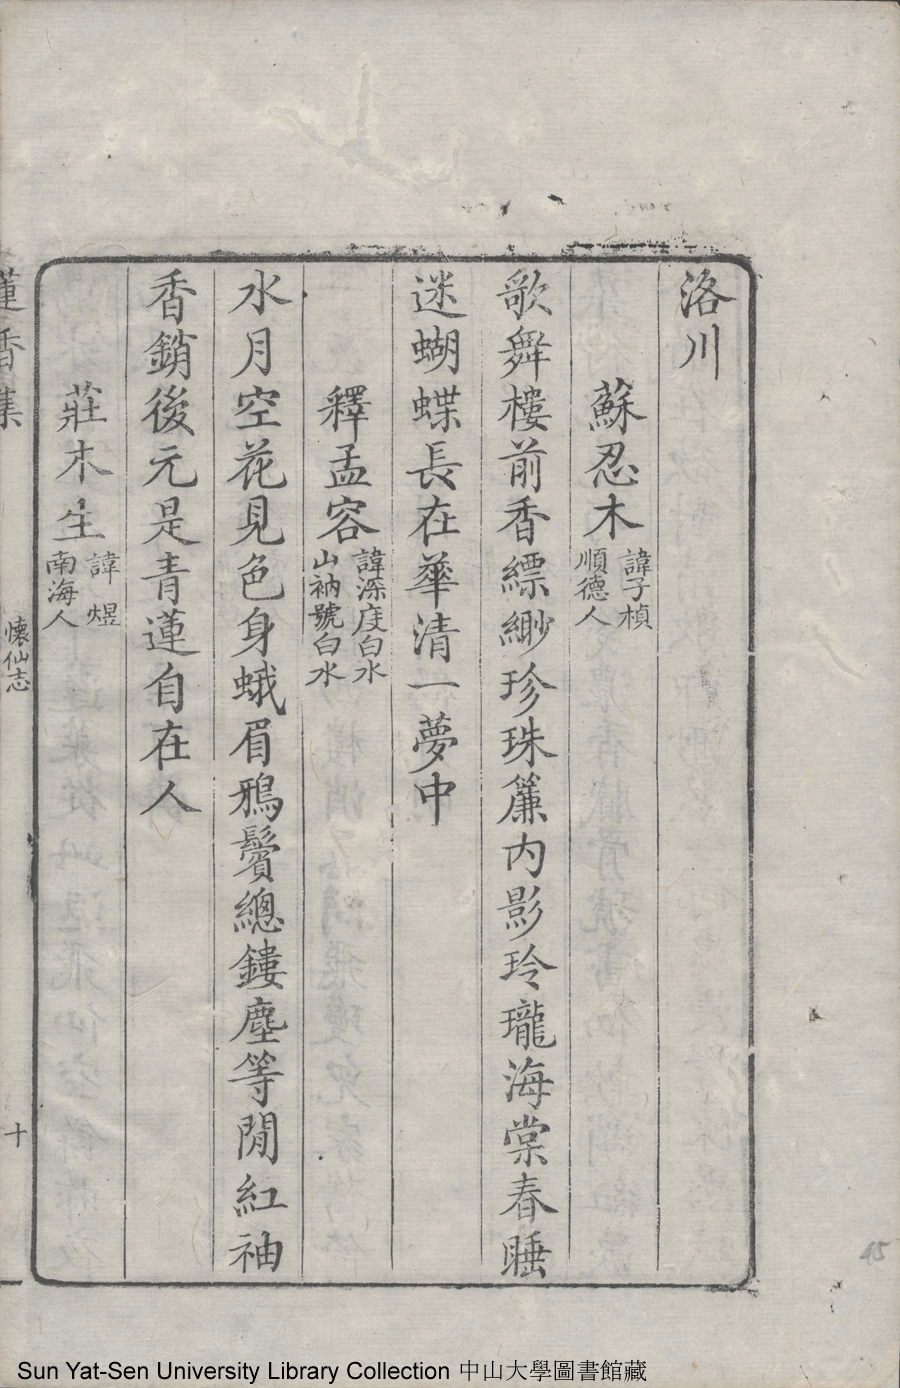 洛川
蘇忍木 諱子楨
順德人
歌舞樓前香縹緲珍珠簾內影玲瓏海棠春睡
迷蝴蝶長在華清一夢中
釋孟容 諱深度白水
山衲號白水
水月空花見色身蛾眉鴉鬢總鏤塵等閒紅袖
香銷後元是青蓮自在人
莊木生 諱煜
南海人
蓮香集
懷仙志
十
Sun Yat-Sen University Library Collection 中山大學圖書館藏